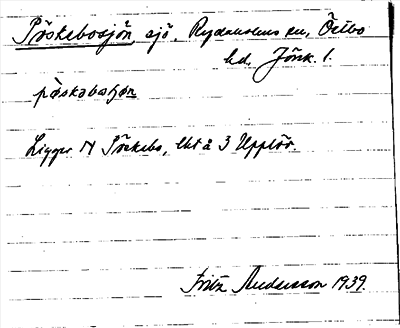 Påskebosjön sjö, Rydaholms sn, Östbo
hd, Jönk. l.
påskabosjön
Ligger N Påskebo, lht å 3
Fritz Andersson 1939.